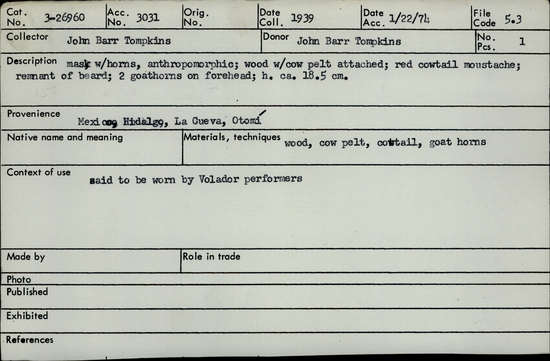 Cat. No. 3-26960 Acc. No. 3031 Orig. No. Date Coll. 1939 Date Acc. 1/22/74 File Code 5.3
Collector John Barr Tompkins Donor John Barr Tompkins No. Pcs. 1
Description mask w/horns, anthropomorphic; wood w/cow pelt attached; red cowtail moustache;
remnant of beard; 2 goathorns on forehead; h. ca. 18.5 cm.
Provenience
Mexico, Hidalgo, La Cueva, Otomí
Native name and meaning Materials, techniques wood, cow pelt, cowtail, goat horns
Context of use
said to be worn by Volador performers
Made by Role in trade
Photo
Published
Exhibited
References